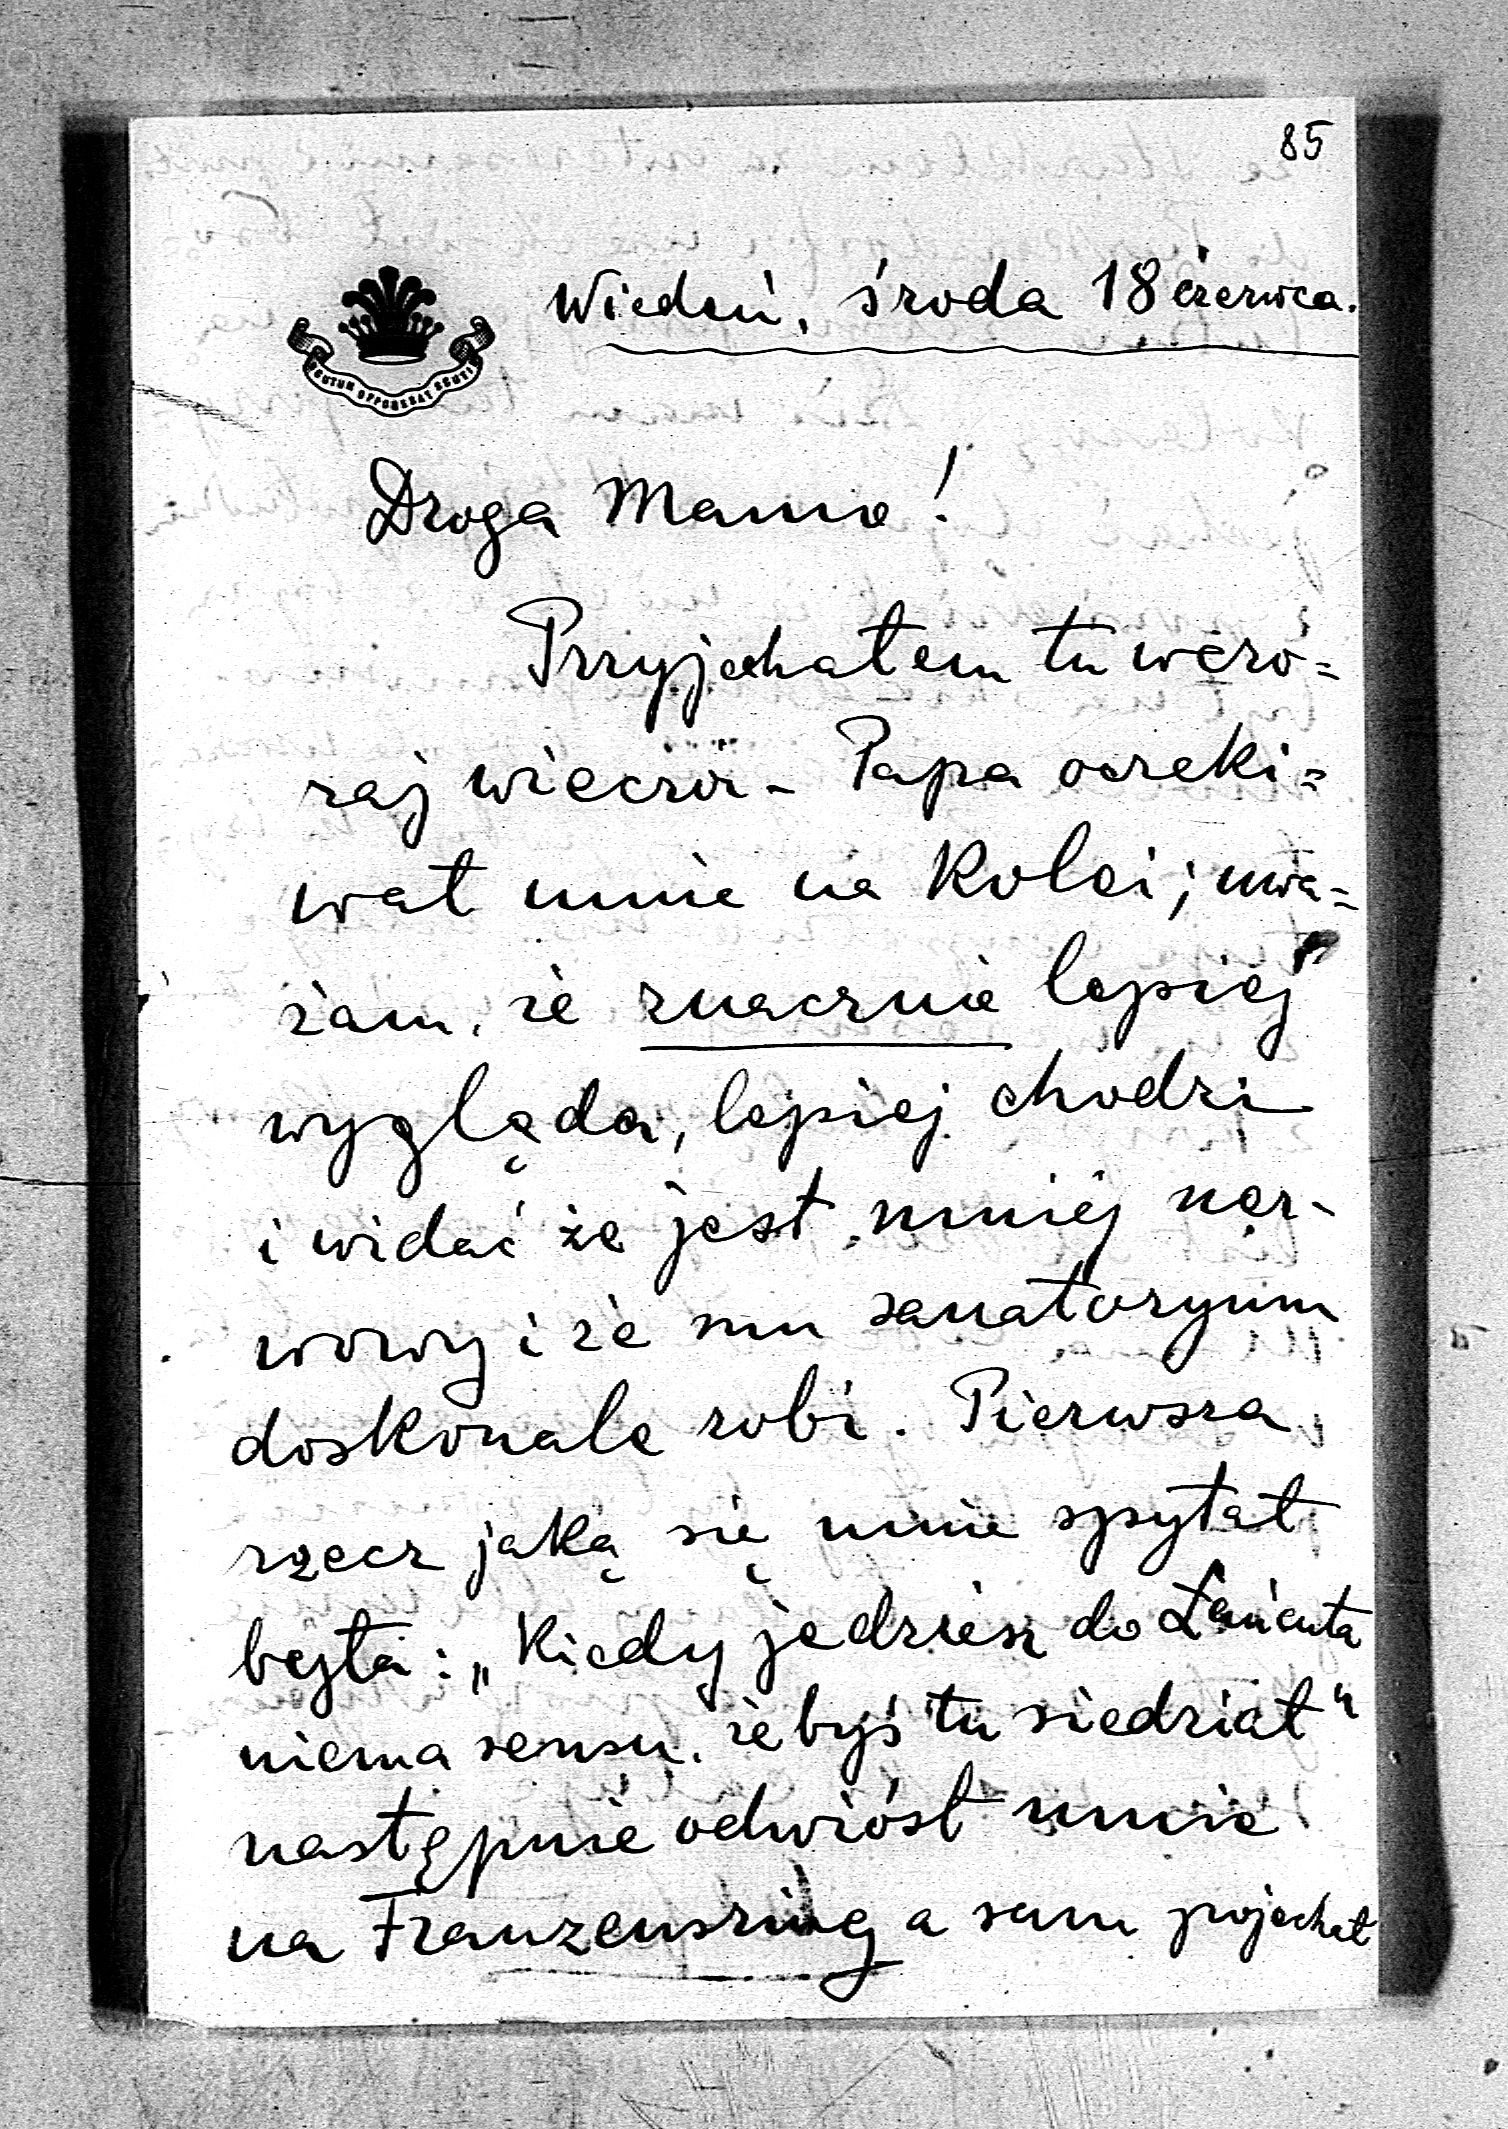 85
Wiedeń, środa 18 czerwca.
SCUTUM OPPONEBAT SCUTI
Droga Mamo!
Przyjechałem tu wczo=
raj wieczór - Papa oczeki=
wał mnie na kolei; uwa=
żam, że znacznie lepiej
wygląda, lepiej chodzi
i widać że jest mniej ner-
wowy i że mu sanatoryum
doskonale robi. Pierwsza
rzecz jaką się mnie spytał
była: „Kiedy jedziesz do Łańcuta
niema sensu, żebyś tu siedział"
następnie odwiózł mnie
na Franzensring a sam pojechał